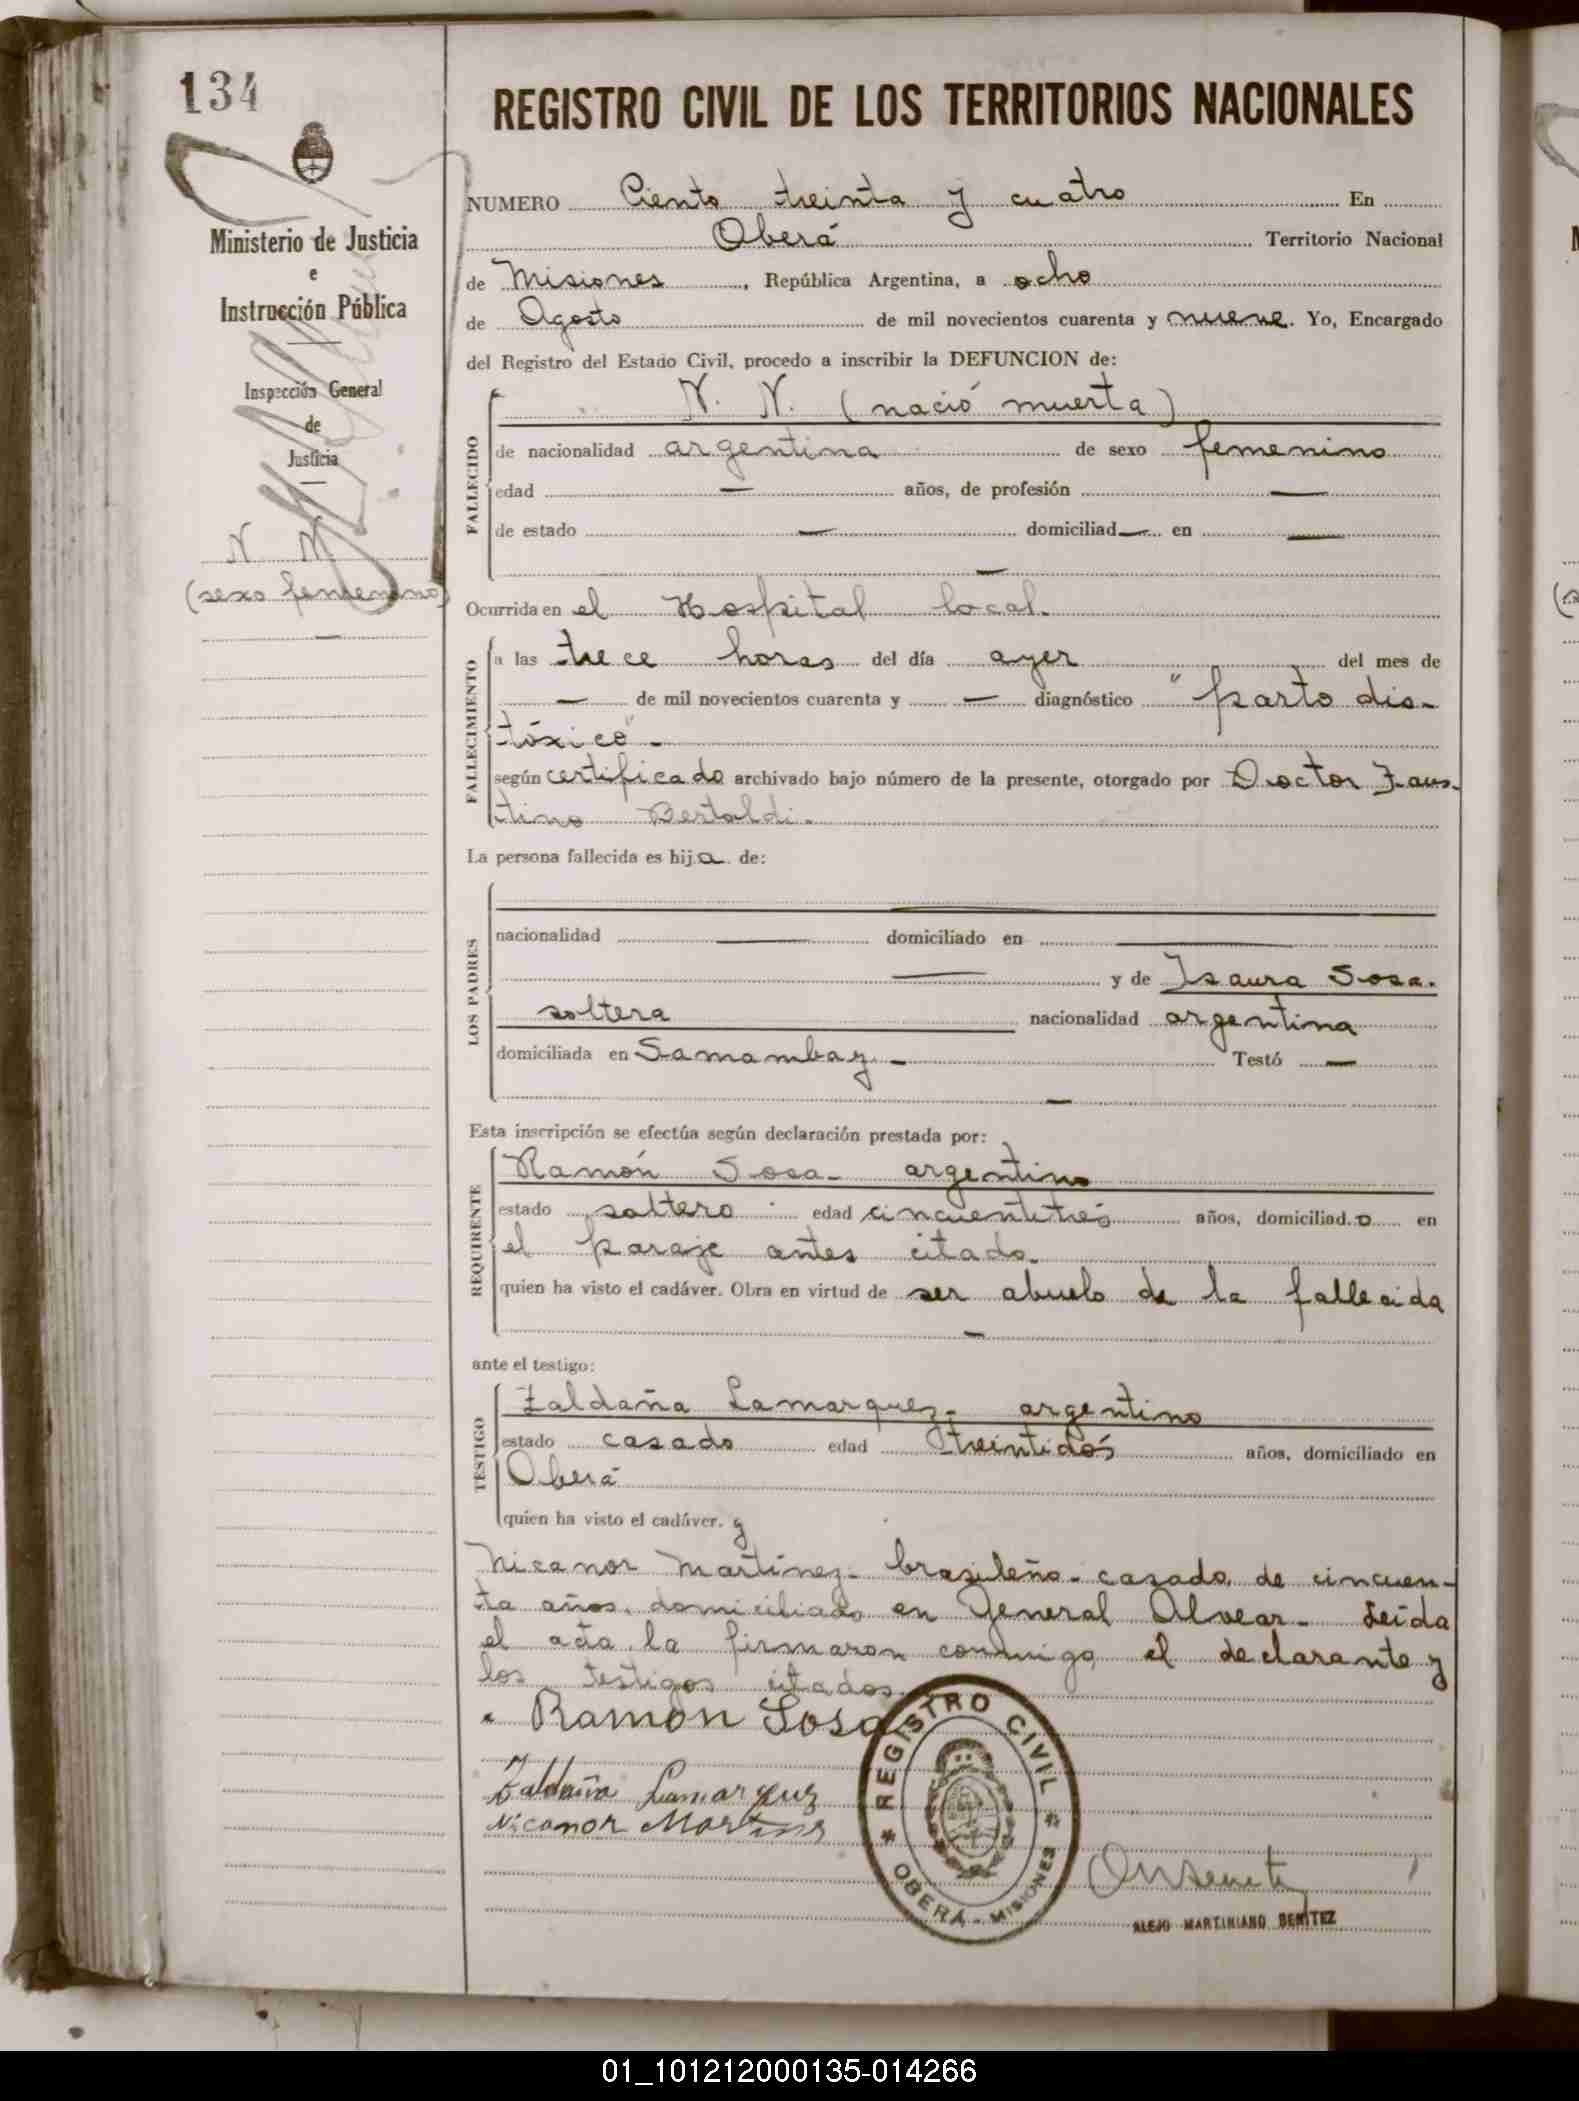 134
REGISTRO CIVIL DE LOS TERRITORIOS NACIONALES
Ministerio de Justicia
e
Instrucción Pública
Inspección General
de
Justicia
N N
(sexo femenino)
NUMERO Ciento treinta y cuatro En
Oberá Territorio Nacional
de Misiones, República Argentina, a ocho
de Agosto de mil novecientos cuarenta y nueve. Yo, Encargado
del Registro del Estado Civil, procedo a inscribir la DEFUNCION de:
FALLECIDO
N. N. (nació muerta)
de nacionalidad argentina de sexo femenino
edad — años, de profesión —
de estado — domiciliad— en —
—
Ocurrida en el Hospital local.
FALLECIMIENTO
a las trece horas del día ayer del mes de
— de mil novecientos cuarenta y — diagnóstico "parto dis-
tóxico"-
según certificado archivado bajo número de la presente, otorgado por Doctor Faus-
tino Bertoldi.
La persona fallecida es hija de:
LOS PADRES
—
nacionalidad — domiciliado en —
— y de Isaura Sosa.
soltera nacionalidad argentina
domiciliada en Samambay - Testó —
—
Esta inscripción se efectúa según declaración prestada por:
REQUIRENTE
Ramón Sosa- argentino
estado soltero edad cincuentitrés años, domiciliado en
el paraje antes citado.
quien ha visto el cadáver. Obra en virtud de ser abuelo de la fallecida
—
ante el testigo:
TESTIGO
Zaldaña Lamarquez- argentino
estado casado edad treintidós años, domiciliado en
Oberá
quien ha visto el cadáver. y
Nicanor Martínez- brasileño- casado, de cincuen-
ta años, domiciliado en General Alvear- Leída
el acta, la firmaron conmigo el declarante y
los testigos citados.
Ramón Sosa
Zaldaña Lamarquez
Nicanor Martinez
REGISTRO CIVIL
OBERÁ - MISIONES
ALEJO MARTINIANO BENITEZ
01_101212000135-014266